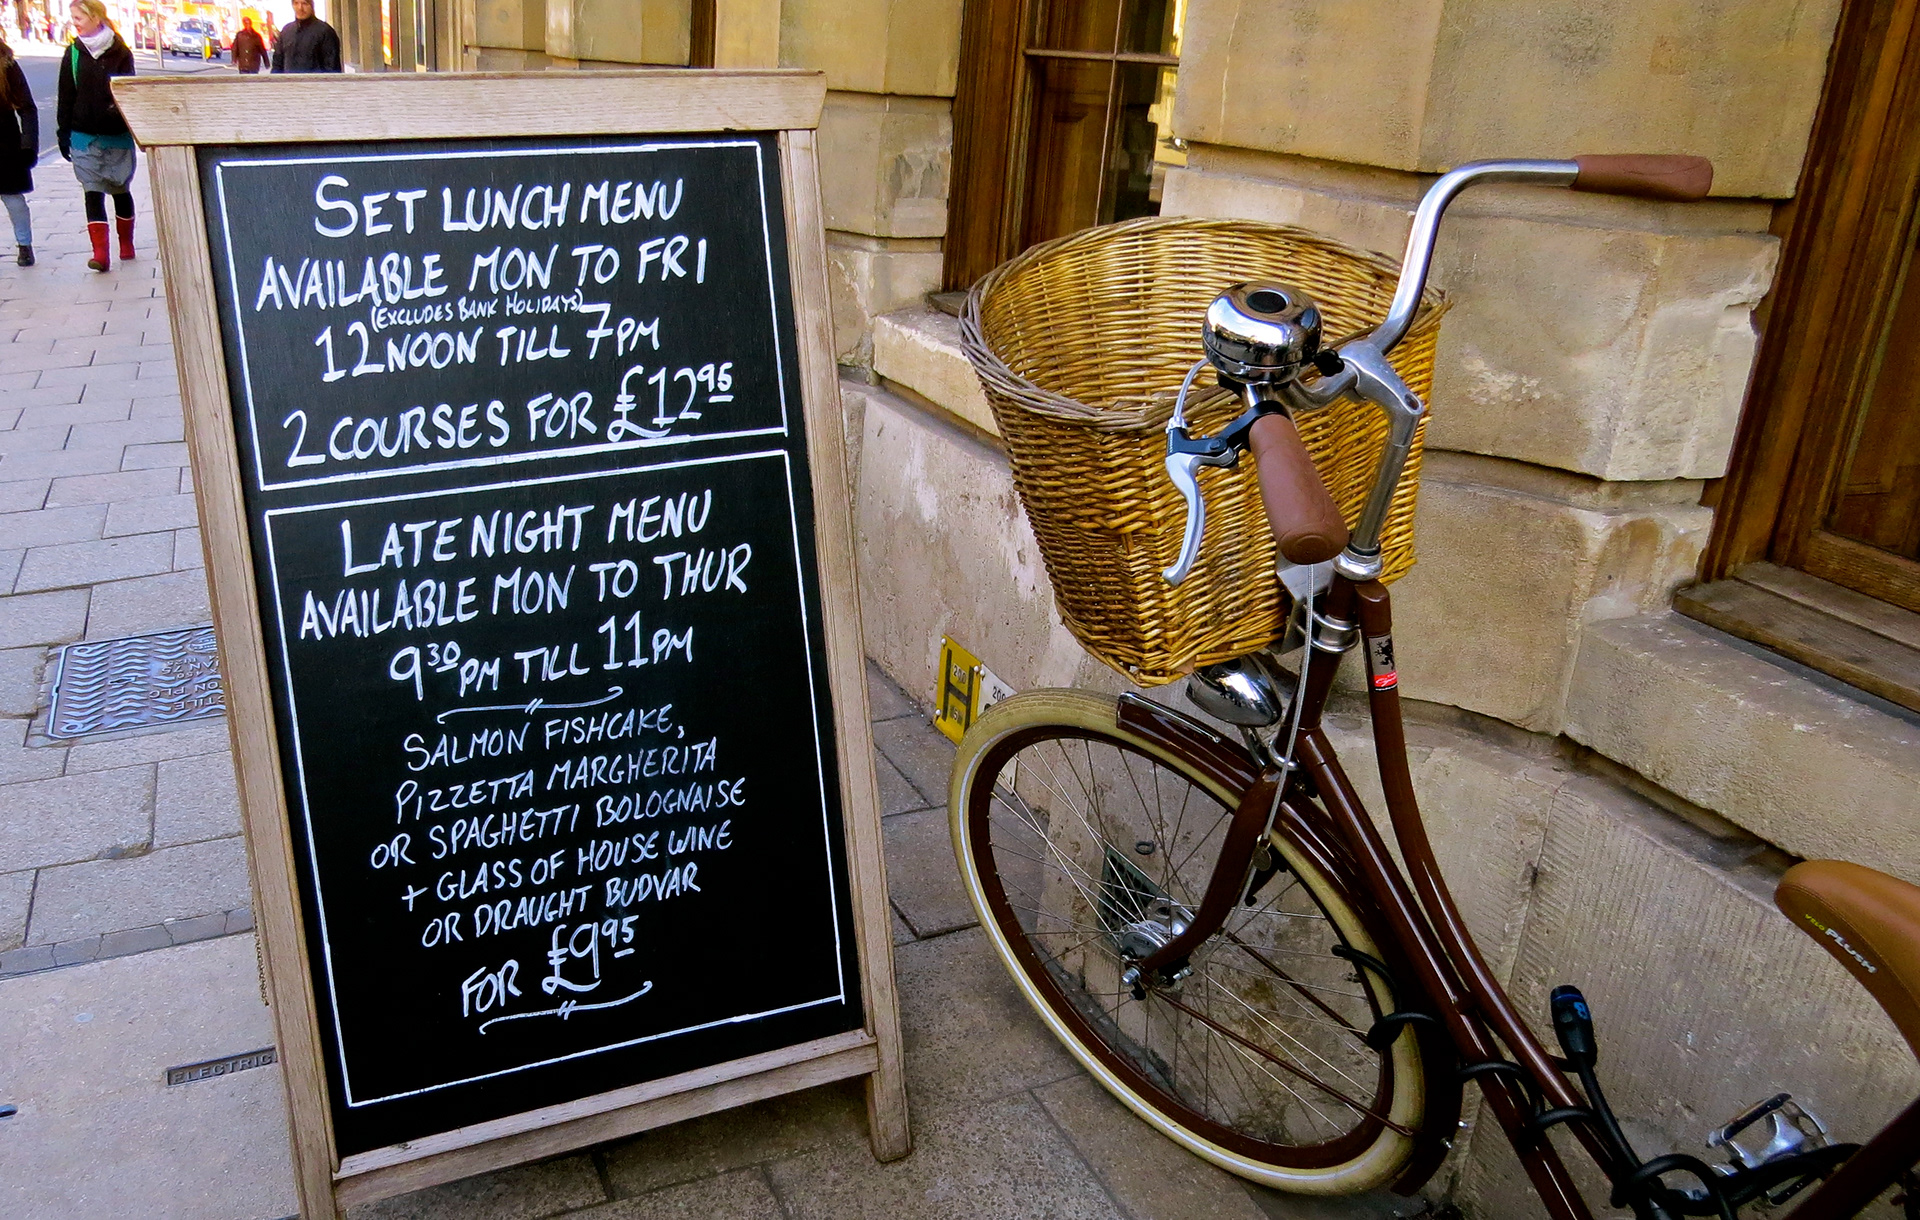 SET LUNCH MENU
AVAILABLE MON TO FRI
(EXCLUDES BANK HOLIDAYS)
12NOON TILL 7PM
2 COURSES FOR £12.95
LATE NIGHT MENU
AVAILABLE MON TO THUR
9.30PM TILL 11PM
SALMON FISHCAKE,
PIZZETTA MARGHERITA
OR SPAGHETTI BOLOGNAISE
+ GLASS OF HOUSE WINE
OR DRAUGHT BUDVAR
FOR £9.95
ELECTRIC
H
PLUSH